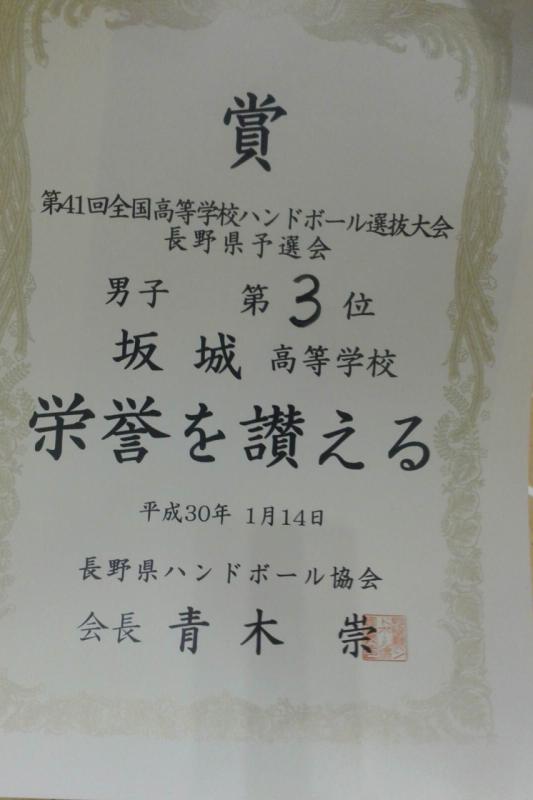 賞
第41回全国高等学校ハンドボール選抜大会
長野県予選会
男子 第3位
坂城高等学校
栄誉を讃える
平成30年 1月14日
長野県ハンドボール協会
会長 青木 崇